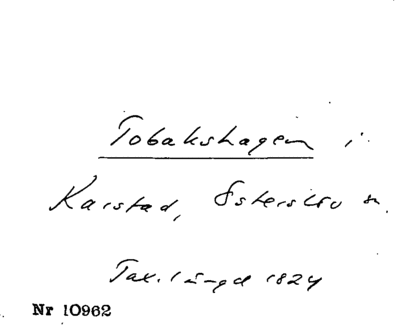 Tobakshagen i
Karstad, Österskär sn.
Tax. längd 1824
Nr 10962